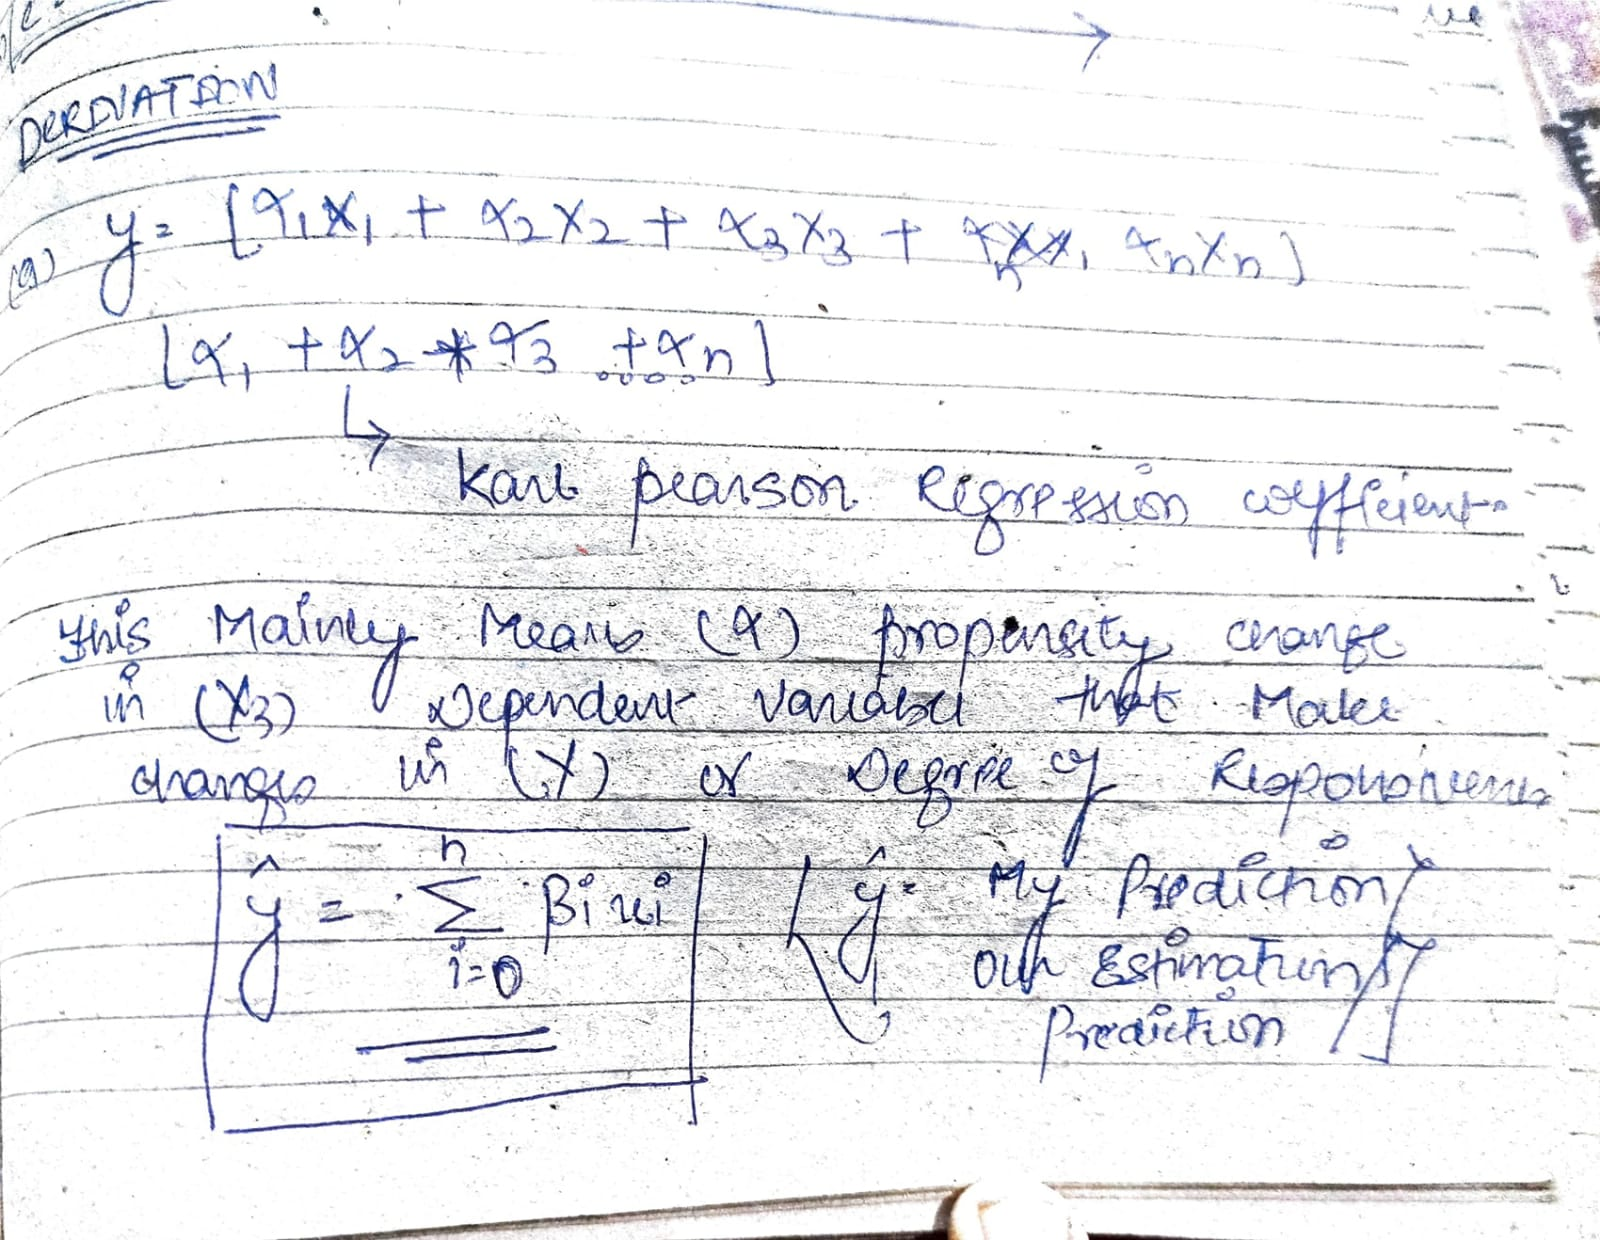 DERIVATION
(a) y = [α₁x₁ + α₂x₂ + α₃x₃ + αₙxₙ]
[α₁ + α₂ * α₃ .... + αₙ]
↳ Karl pearson Regression coefficient.
This Mainly Means (α) propensity change
in (X₃) Dependent variable that Make
changes in (Y) or Degree of Responsiveness
ŷ = n Σ i=0 βi xi
[ŷ = My Prediction
our Estimation
Prediction]